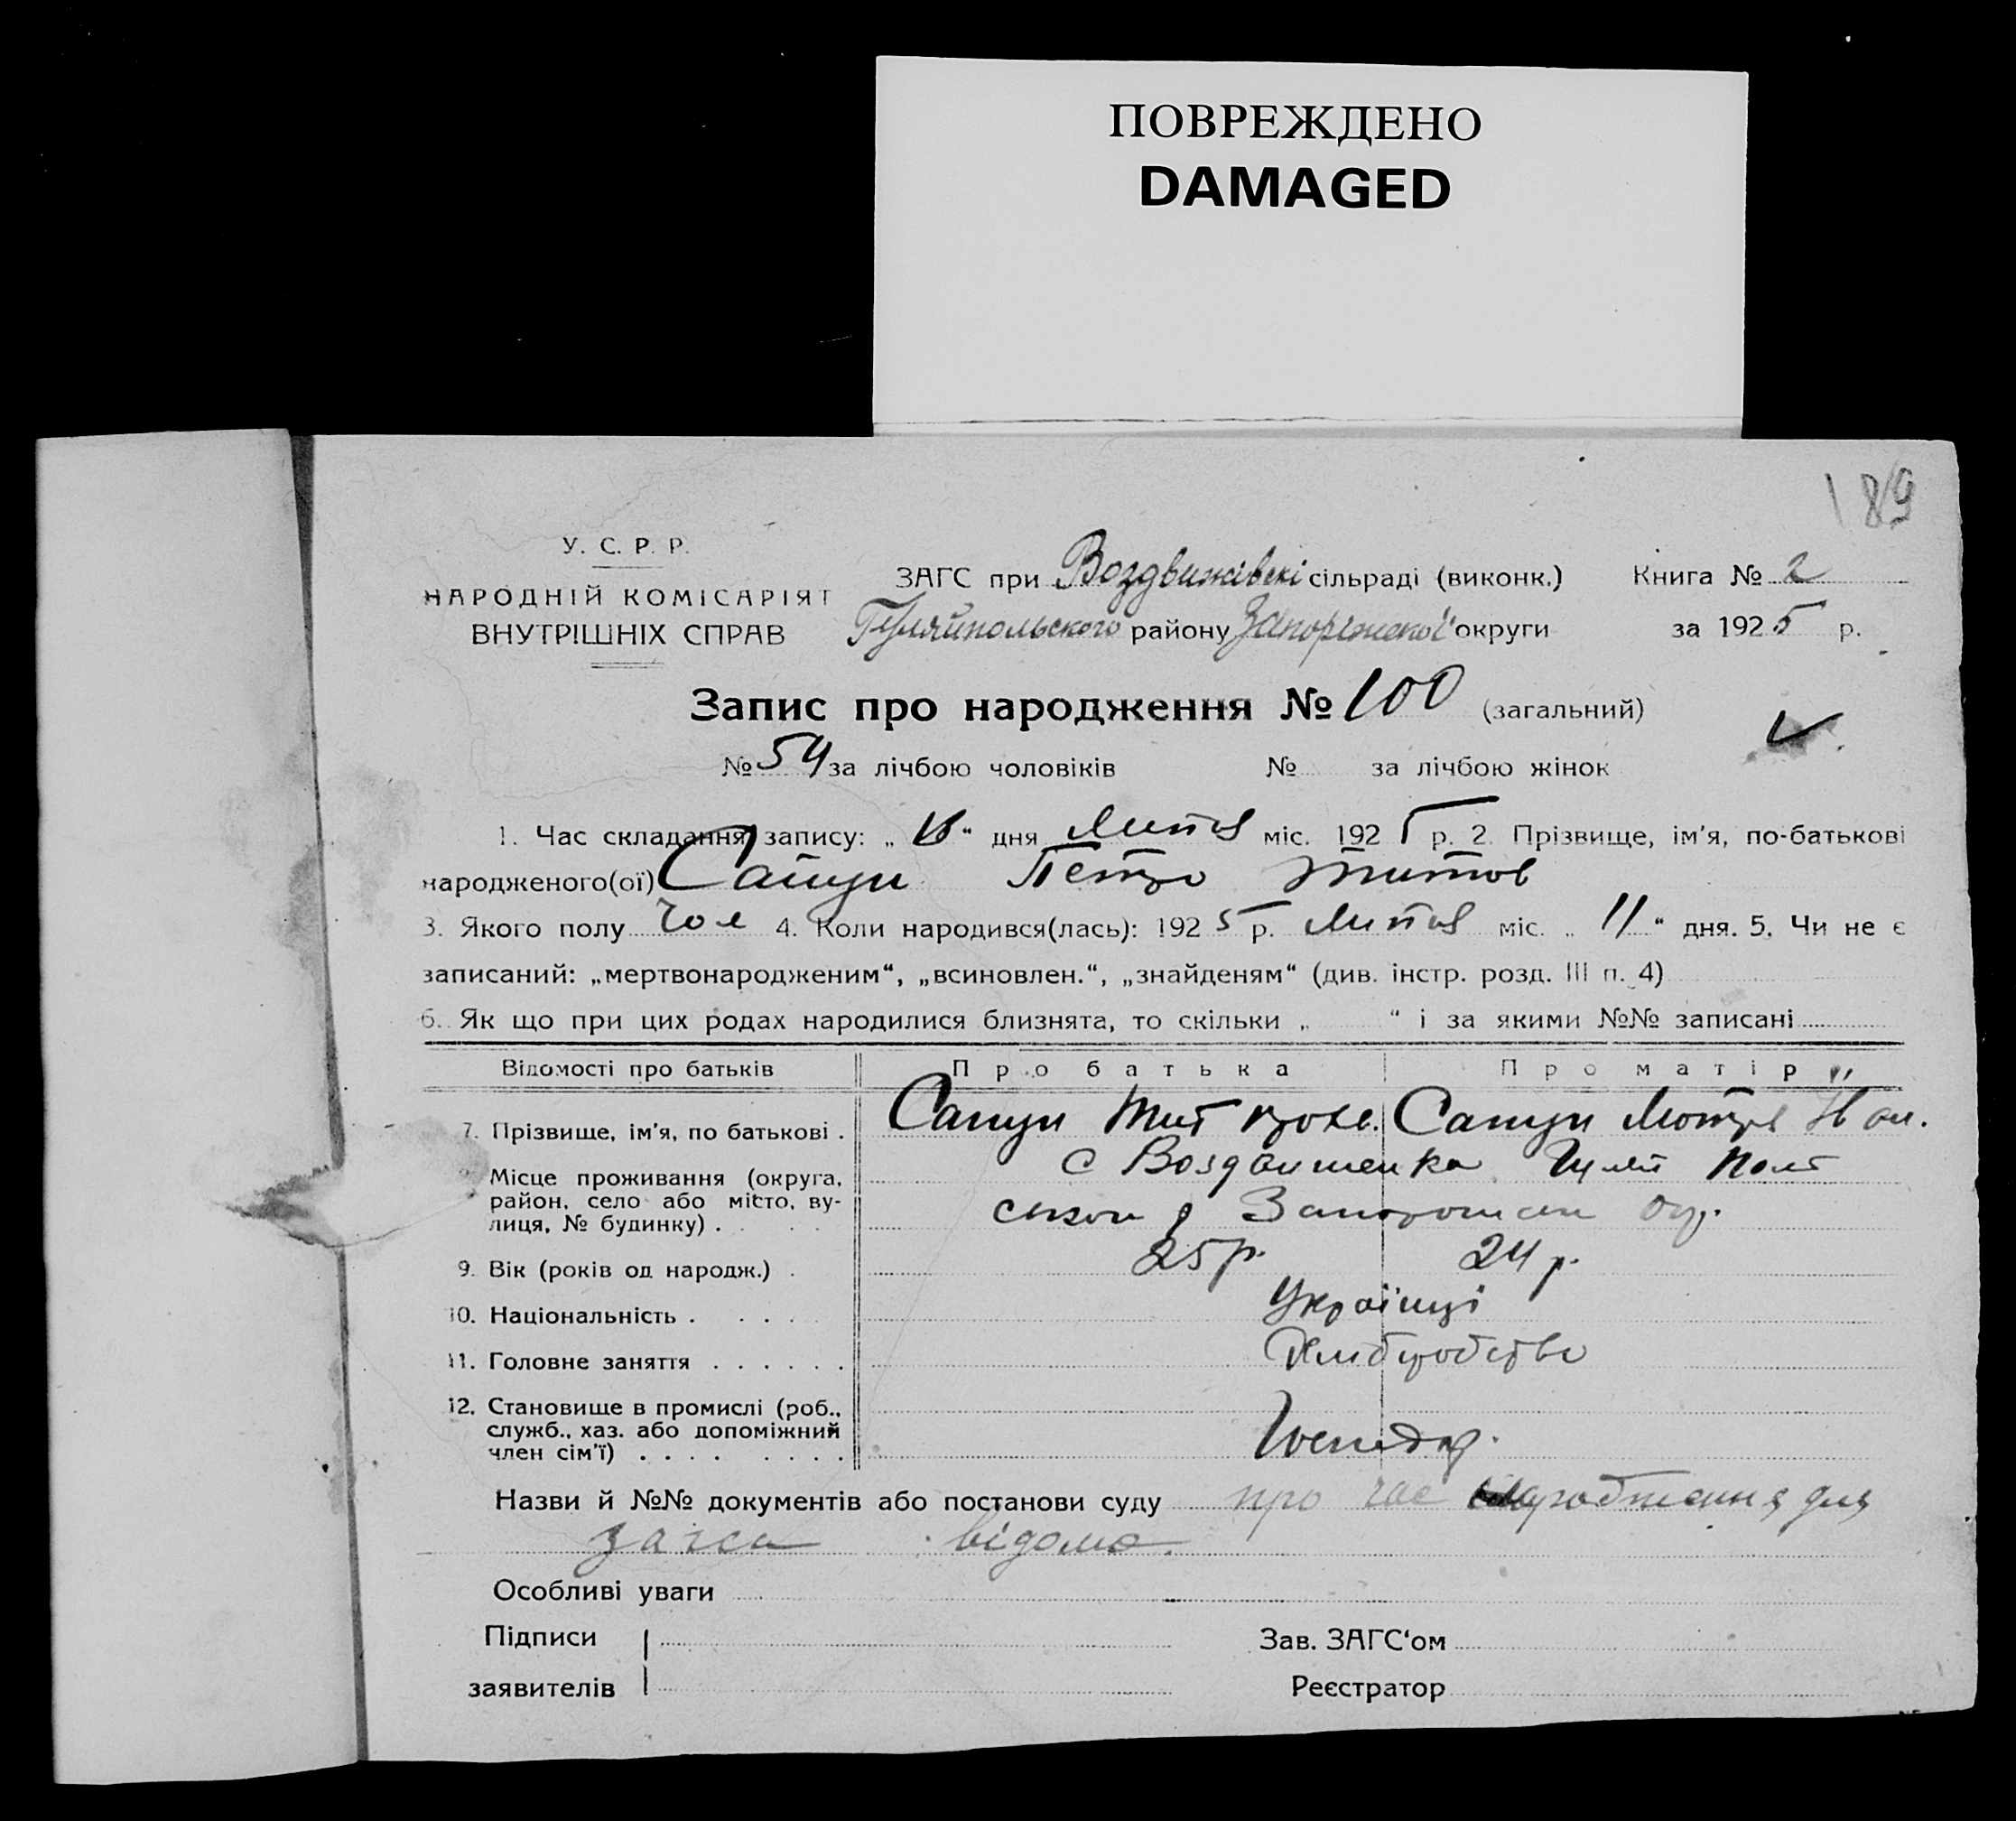 ПОВРЕЖДЕНО
DAMAGED
189
У. С. Р. Р.
НАРОДНІЙ КОМІСАРІЯТ
ВНУТРІШНІХ СПРАВ
ЗАГС при Воздвижівскі сільраді (виконк.) Книга № 2
Гуляйпольского району Запоріжської округи за 1925 р.
Запис про народження № 100 (загальний)
№ 54 за лічбою чоловіків № за лічбою жінок
1. Час складання запису: „ “ дня Липня міс. 1925 р. 2. Прізвище, ім’я, по-батькові
народженого(ої) Сапун Петро Титов
3. Якого полу чол 4. Коли народився(лась): 1925 р. Липня міс. „ 11 “ дня. 5. Чи не є
записаний: „мертвонародженим“, „всиновлен.“, „знайденям“ (див. інстр. розд. III п. 4)
6. Як що при цих родах народилися близнята, то скільки „ “ і за якими №№ записані
Відомості про батьків Про батька Про матір
7. Прізвище, ім’я, по батькові . Сапун Тит Сапун Мотря
Місце проживання (округа, район, село або місто, вулиця, № будинку) . с Воздвиженка Гуляй Поль
Запорожск ок.
9. Вік (років од народж.) . 25 р. 24 р.
10. Національність . . . . . Українці
11. Головне заняття . . . . . . Хліборобство
12. Становище в промислі (роб., служб., хаз. або допоміжний член сім’ї) . . . . . . . . Господар.
Назви й №№ документів або постанови суду про час народження для
загса відомо.
Особливі уваги
Підписи
заявителів
Зав. ЗАГС‘ом
Реєстратор